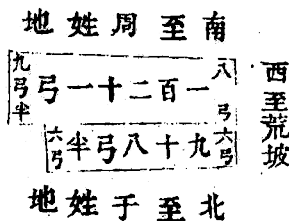 南至周姓地
西至荒坡
八弓
一百二十一弓
九弓半
六弓
九十八弓半
六弓
北至于姓地